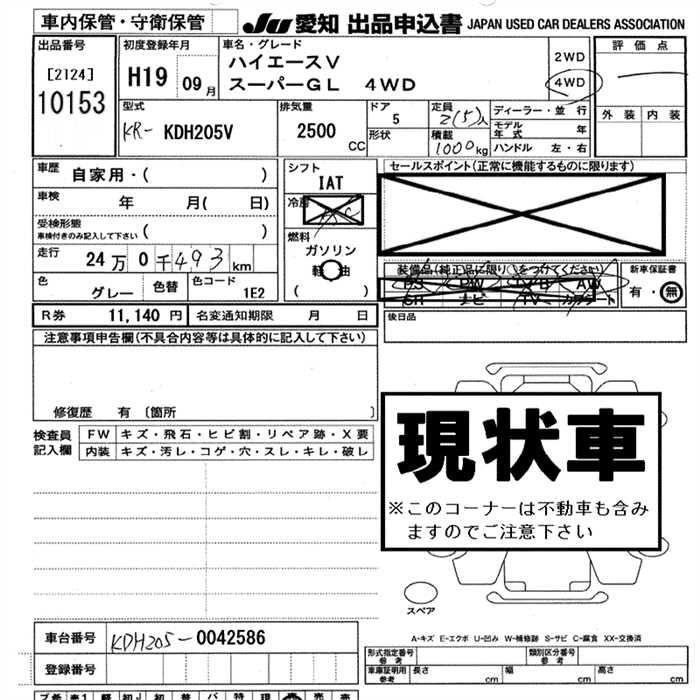 車内保管・守衛保管
JU 愛知 出品申込書 JAPAN USED CAR DEALERS ASSOCIATION
出品番号
[2124]
10153
初度登録年月
H19 09月
車名・グレード
ハイエースV
スーパーGL 4WD
2WD
4WD
評価点
外装 内装
型式
KR- KDH205V
排気量
2500 CC
ドア
5
形状
定員
2(5)人
積載
1000kg
ディーラー・並行
モデル年式 年
ハンドル 左・右
車歴
自家用・( )
車検
年 月( 日)
受検形態
車検付きのみ記入して下さい ( )
走行
24万0千493km
色
グレー
色替
色コード
1E2
シフト
IAT
冷房
AC
燃料
ガソリン
軽油
( )
セールスポイント(正常に機能するものに限ります)
装備品(純正品に限り○をつけてください)
PS PW エアB AW
SR ナビ TV カワシート
新車保証書
有・無
R券 11,140円 名変通知期限 月 日
後日品
注意事項申告欄(不具合内容等は具体的に記入して下さい)
修復歴 有 〔箇所 〕
検査員記入欄
FW キズ・飛石・ヒビ割・リペア跡・X要
内装 キズ・汚レ・コゲ・穴・スレ・キレ・破レ
現状車
※このコーナーは不動車も含み
ますのでご注意下さい
スペア
A-キズ E-エクボ U-凹み W-補修跡 S-サビ C-腐食 XX-交換済
車台番号
KDH205-0042586
登録番号
形式指定番号 参考
類別区分番号 参考
車庫証明用 参考 長さ cm 幅 cm 高さ cm